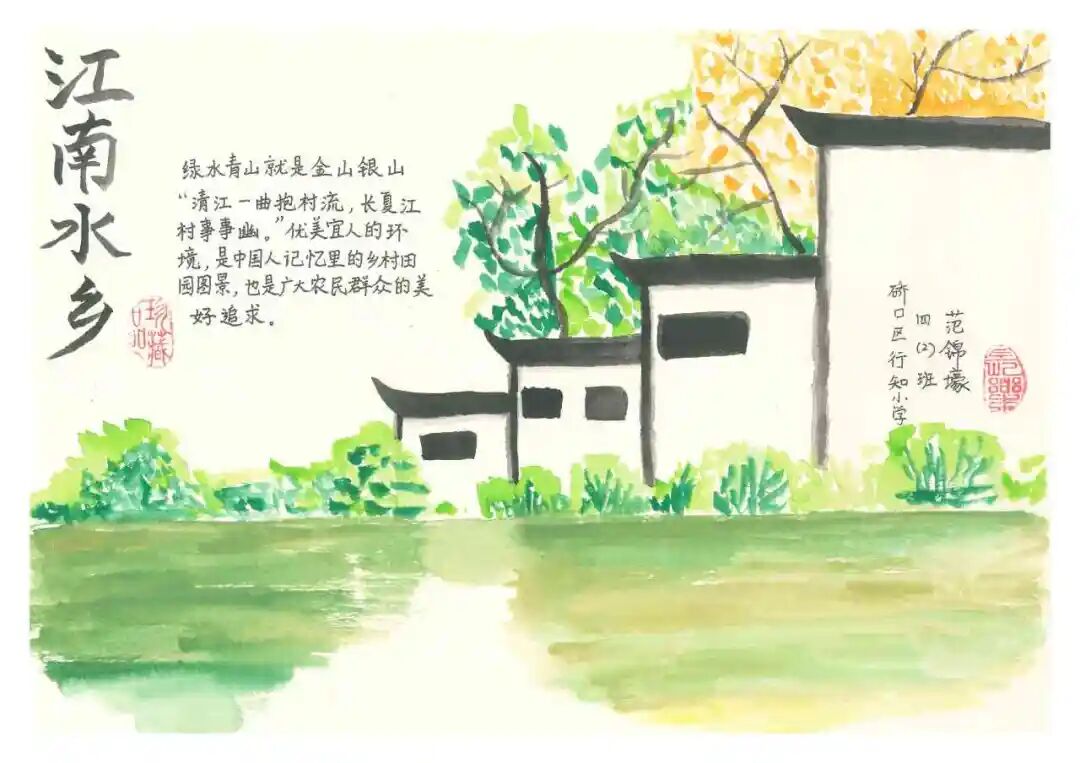 江南水乡
绿水青山就是金山银山
“清江一曲抱村流，长夏江
村事事幽。”优美宜人的环
境，是中国人记忆里的乡村田
园图景，也是广大农民群众的美
好追求。
硚口区行知小学
四（2）班
范锦壕